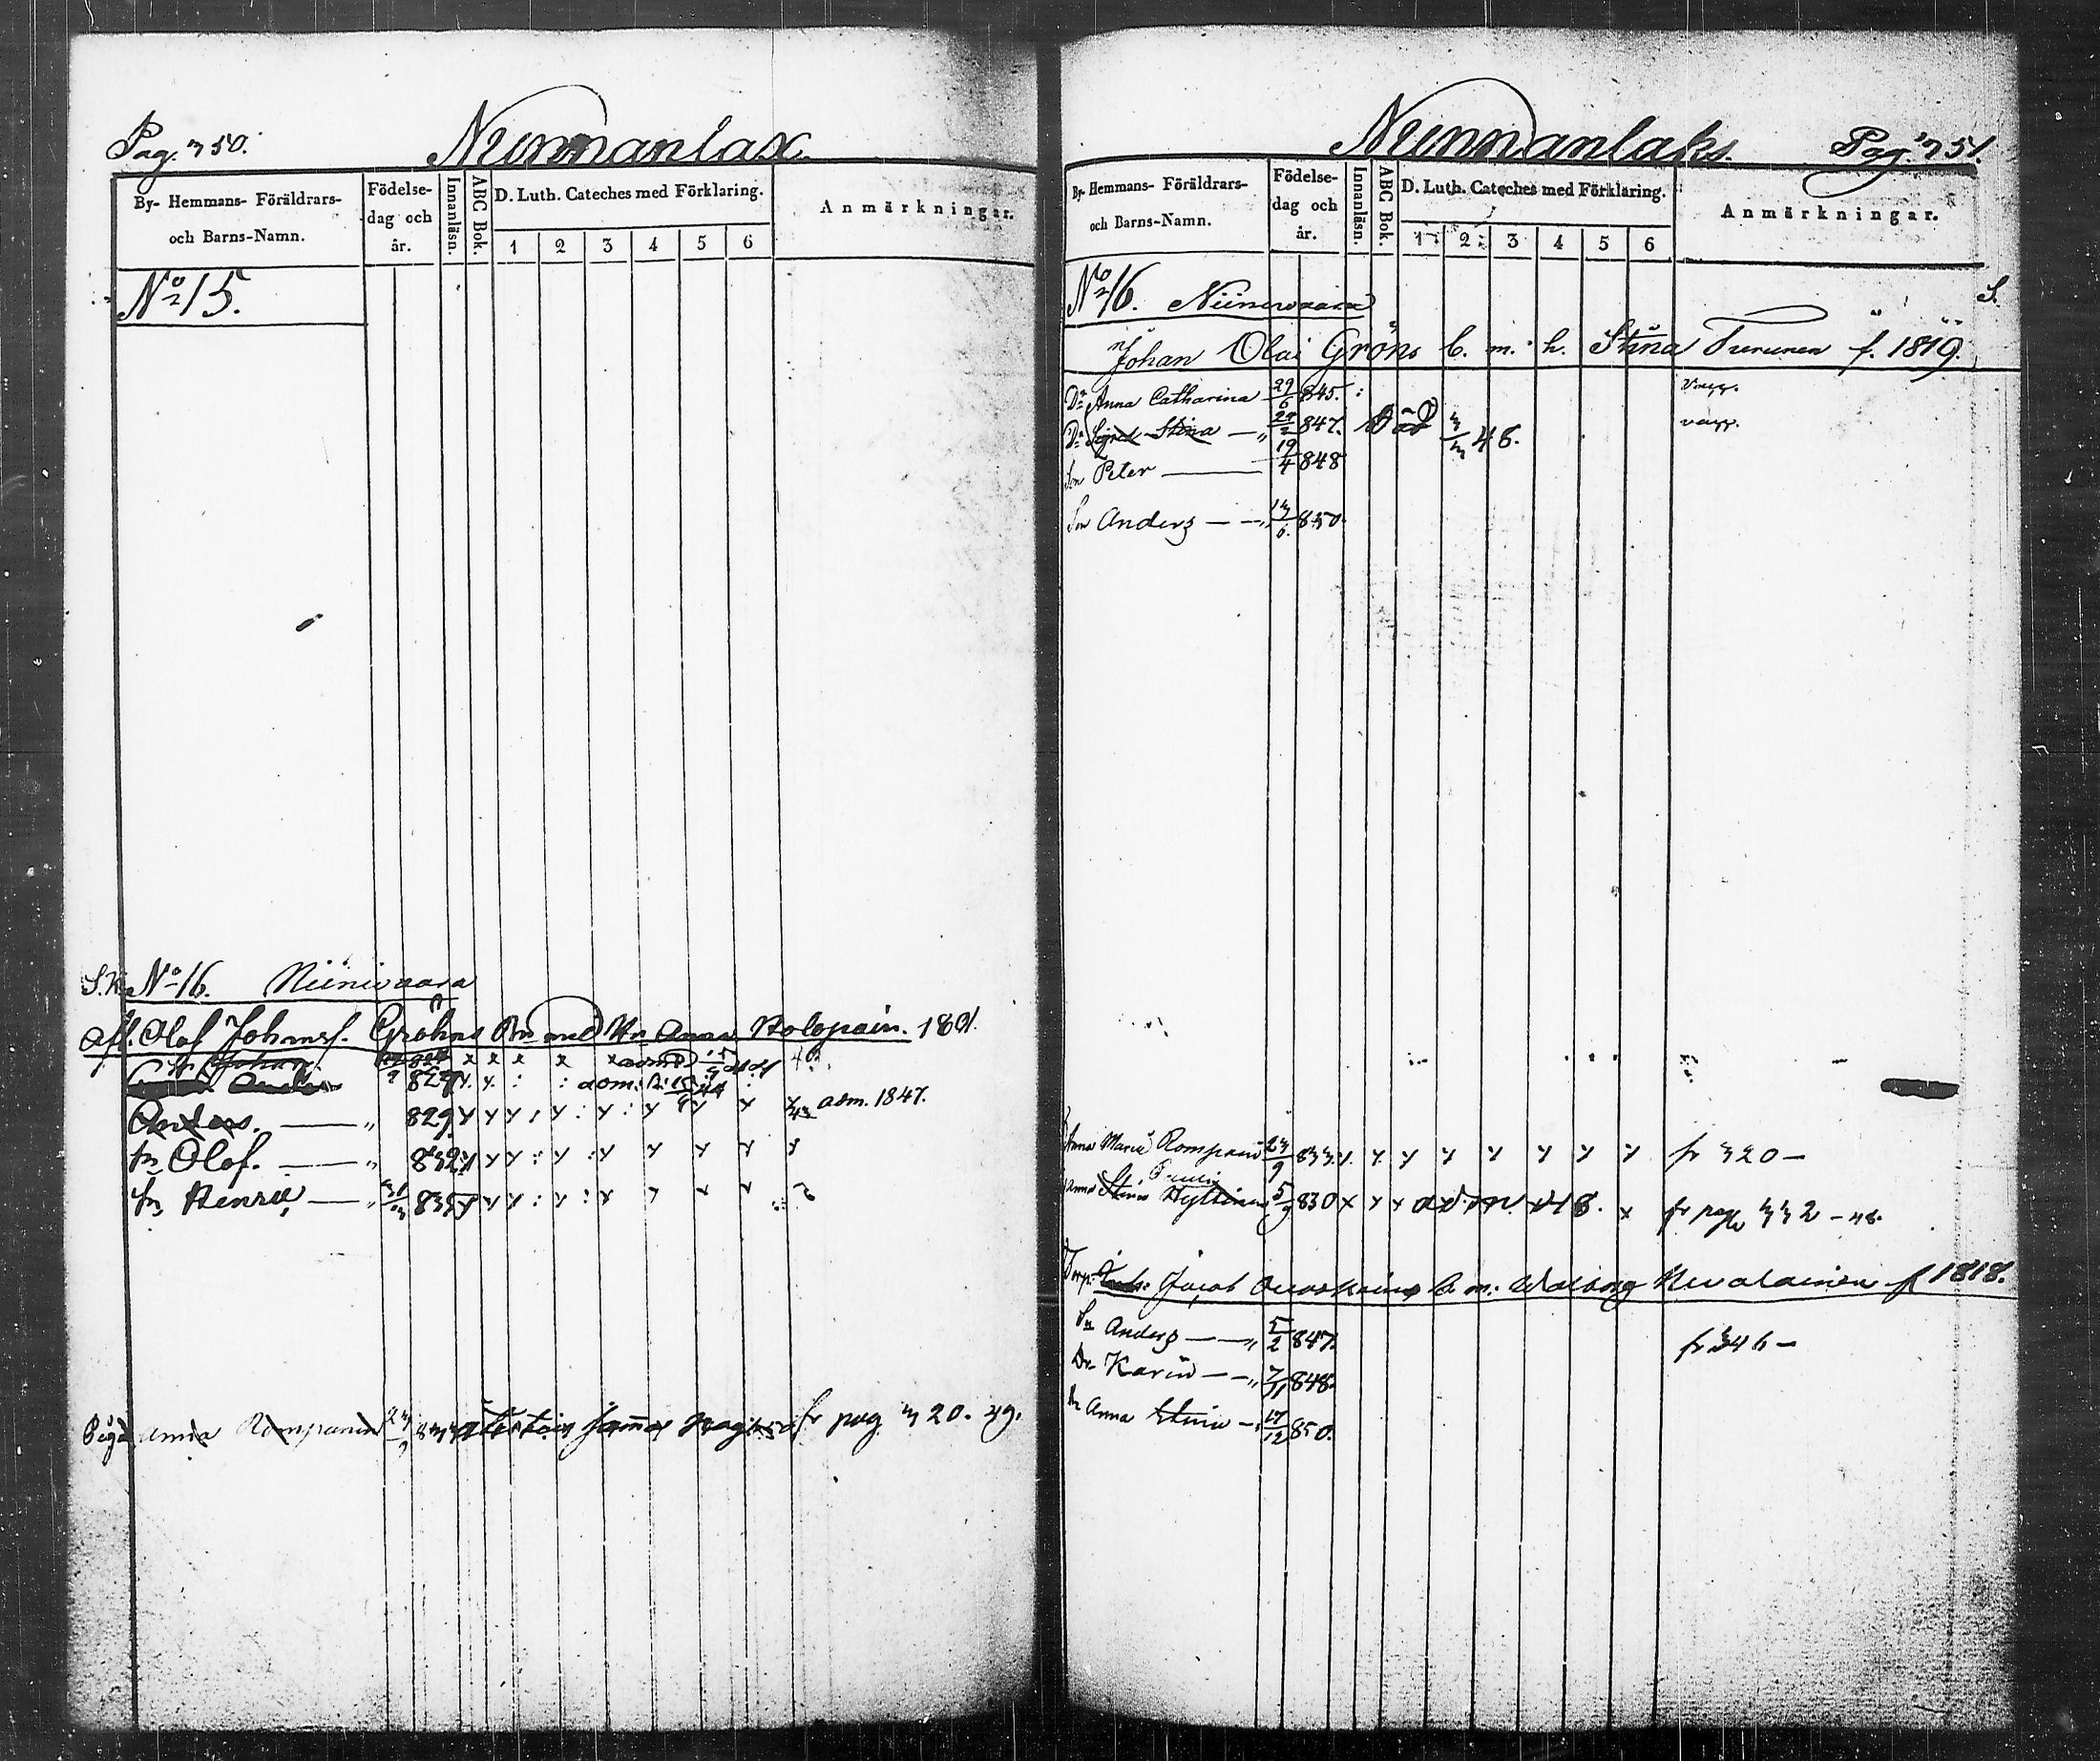 Pag. 350.
Nunnanlax
By- Hemmans- Föräldrars- och Barns-Namn.
Födelse- dag och år.
Innanläsn.
ABC Bok.
D. Luth. Cateches med Förklaring.
1 2 3 4 5 6
Anmärkningar.
No 15.
S.K. No 16. Niiniwaara
Afl. Olof Johansf. Gröhns Bn med Hu Anna Holopain. 1801.
Sn Johan x x x x x adm. 15/9
829 x x : : adm.
Anders. — " 829 x x x : x : x x x adm. 1847.
Sn Olof. — " 832 x x x : x : x x x x x
Sn Henric — " 835 x x x : x : x x x x
Piga Anna Rompanen 23/9 833 samma pagina fr pag 320. 49.
Nunnanlaks.
Pag. 351.
By- Hemmans- Föräldrars- och Barns-Namn.
Födelse- dag och år.
Innanläsn.
ABC Bok.
D. Luth. Cateches med Förklaring.
1 2 3 4 5 6
Anmärkningar.
No 16. Niiniwaara
S.
Johan Olai Gröns b. m. h. Stina Turunen f. 1819.
Dr Anna Catharina 29/6 845. : vacc.
Dr Sigrid Stina — " 847. död 3/3 48. vacc.
Son Peter — 19/4 848
Son Anders — " 13/6 850.
Anna Maria Rompain 23/9 833 x. x x x x x x x fr 320 —
Anna Stina Hyttinen 5/9 830 x x x adm 48. x fr pag 332 - 48.
Torp. Jacob Ovaskains b. m. Walborg Nevalainen f 1818.
Sn Anders — " 5/2 847. fr 346 —
Dr Karin — " 7/11 848.
Dr Anna Stina — 17/12 850.